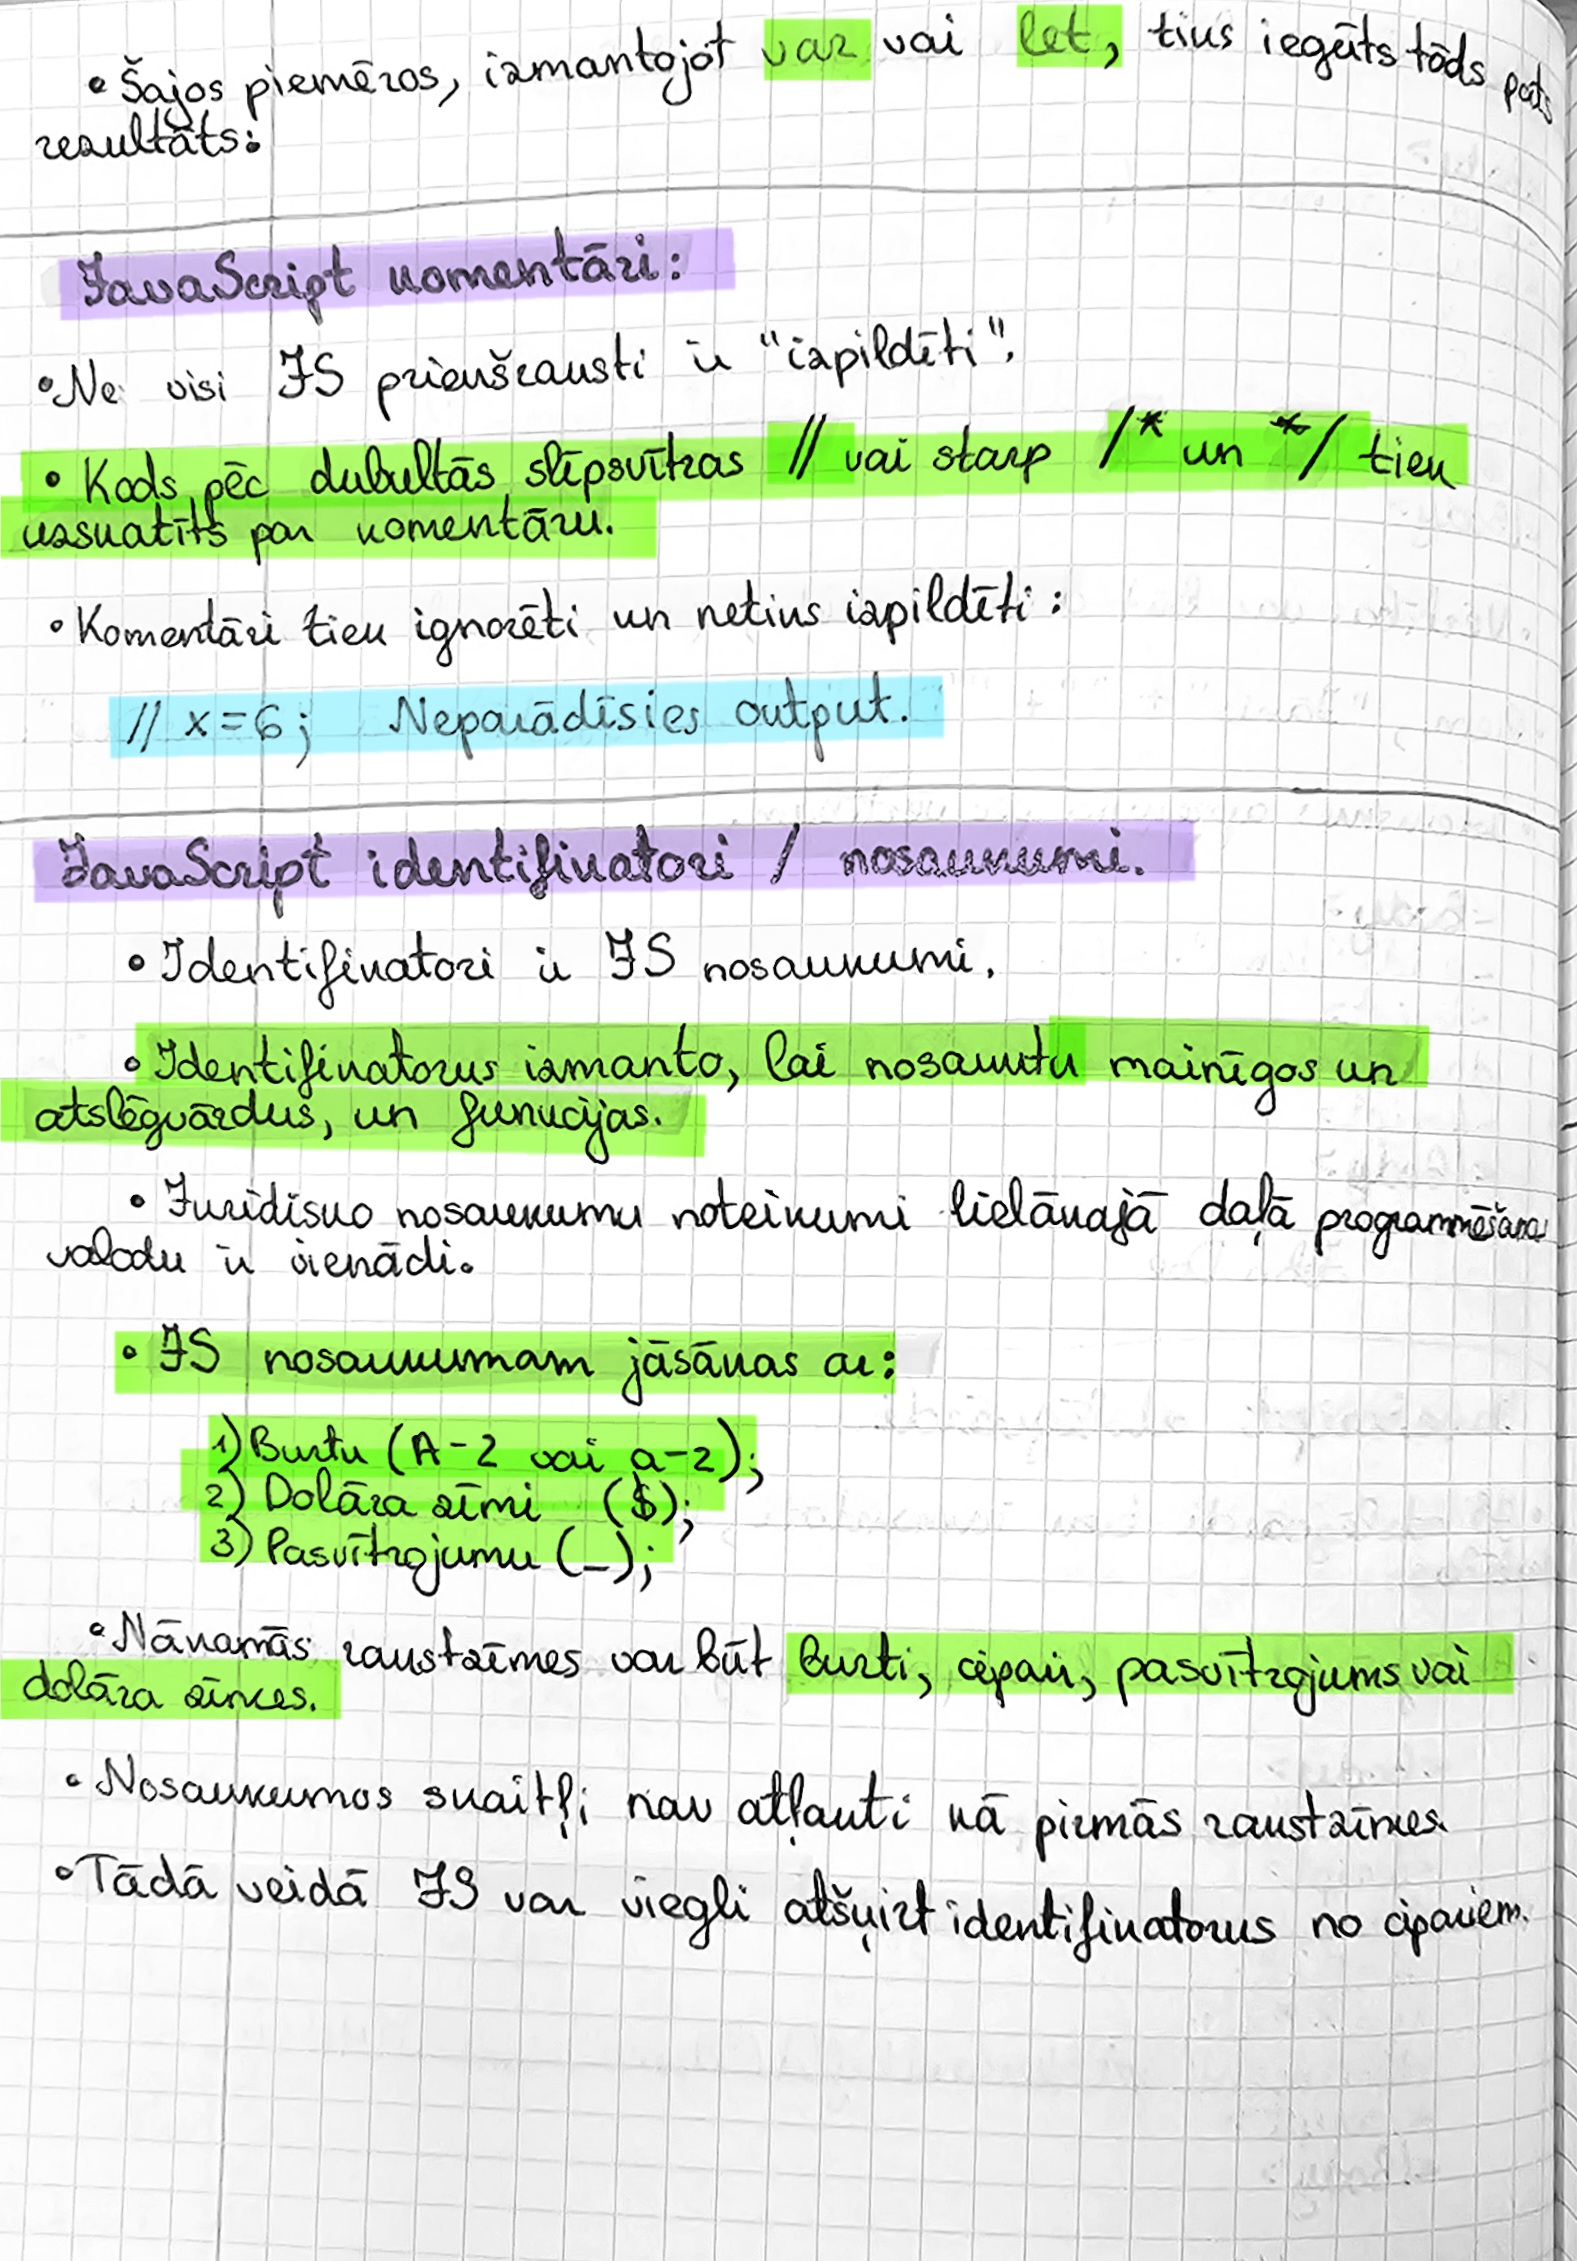 • Šajos piemēros, izmantojot var vai let, tiks iegūts tāds pats
rezultāts:
JavaScript komentāri:
• Ne visi JS priekšraksti ir "izpildīti".
• Kods pēc dubultās slīpsvītras // vai starp /* un */ tiek
uzskatīts par komentāru.
• Komentāri tiek ignorēti un netiks izpildīti:
// x=6; Neparādīsies output.
JavaScript identifikatori / nosaukumi.
• Identifikatori ir JS nosaukumi.
• Identifikatorus izmanto, lai nosauktu mainīgos un
atslēgvārdus, un funkcijas.
• Juridisko nosaukumu noteikumi lielākajā daļā programmēšana
valodu ir vienādi.
• JS nosaukumam jāsākas ar:
1) Burtu (A-Z vai a-z);
2) Dolāra zīmi ($);
3) Pasvītrojumu (_);
• Nākamās rakstzīmes var būt burti, cipari, pasvītrojums vai
dolāra zīmes.
• Nosaukumos skaitļi nav atļauti kā pirmās rakstzīmes.
• Tādā veidā JS var viegli atšķirt identifikatorus no cipariem.